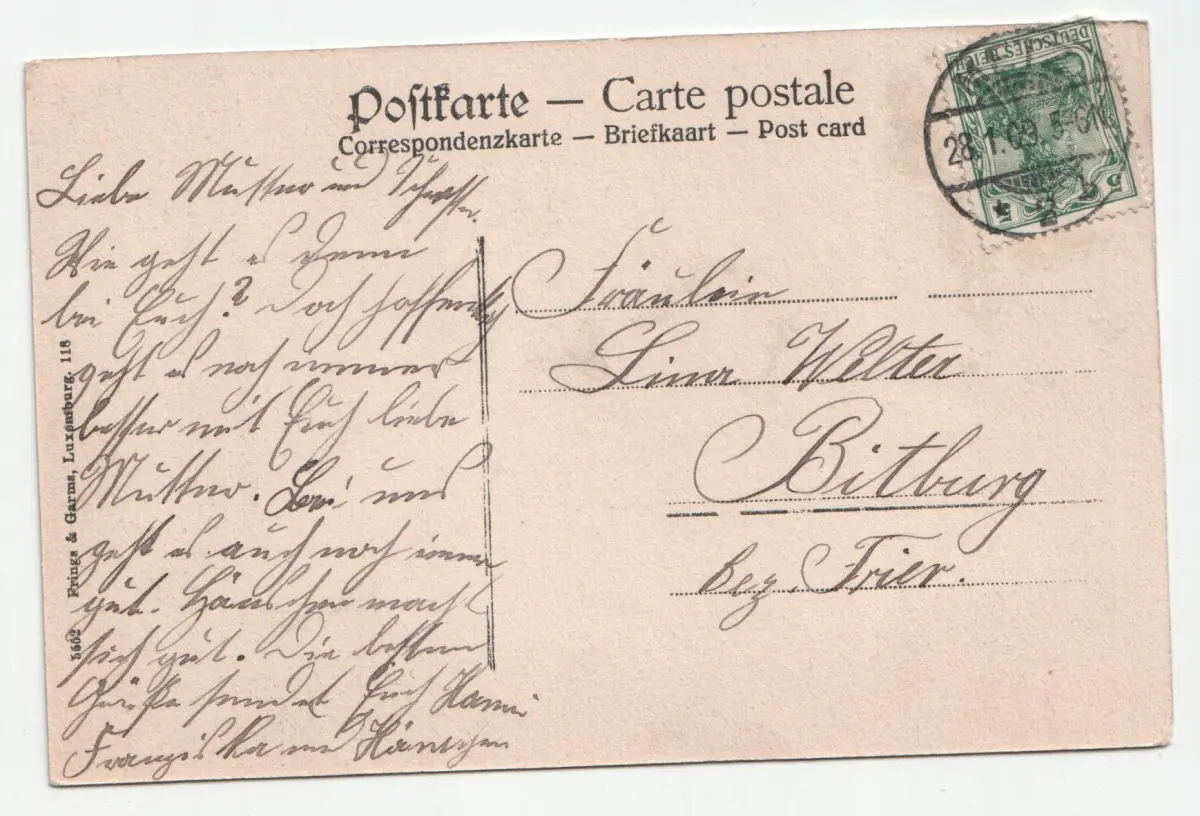 Postkarte — Carte postale
Correspondenzkarte — Briefkaart — Post card
DEUTSCHES REICH
28.1.09 5-6N
* 2 b
5
Liebe Mutter und Schwester.
Wie geht es denn
bei Euch? Doch hoffentlich
geht es noch immer
besser mit Euch liebe
Mutter. Bei uns
geht es auch noch immer
gut. Häuschen macht
sich gut. Die besten
Grüße sendet Euch Hanni
Franziska und Hänschen
Fräulein
Lina Welter
Bitburg
bez. Trier.
5562 Prings & Garms, Luxemburg. 118